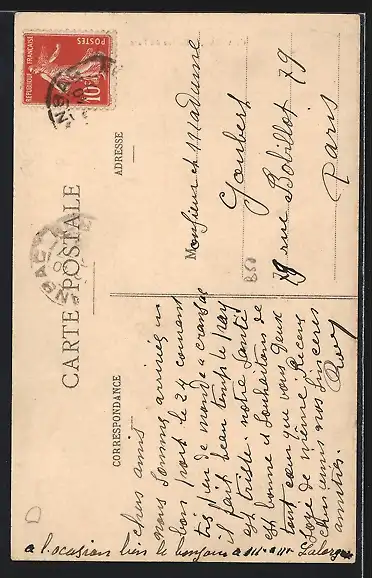 CARTE POSTALE
CORRESPONDANCE
ADRESSE
RÉPUBLIQUE FRANÇAISE
POSTES
10
chers amis
nous sommes arrivés en
bon port le 24 courant
très peu de monde a cransac
il fait beau temps le pays
est triste. notre santé
est bonne et souhaitons de
tout cœur que vous deux
soyez de même, Recevez
chers amis nos sincères
amitiés.
Roby
a l'ocasion bien le bonjour a
Monsieur et Madame
Goubert
79 rue Bobillot 79
Paris
B50